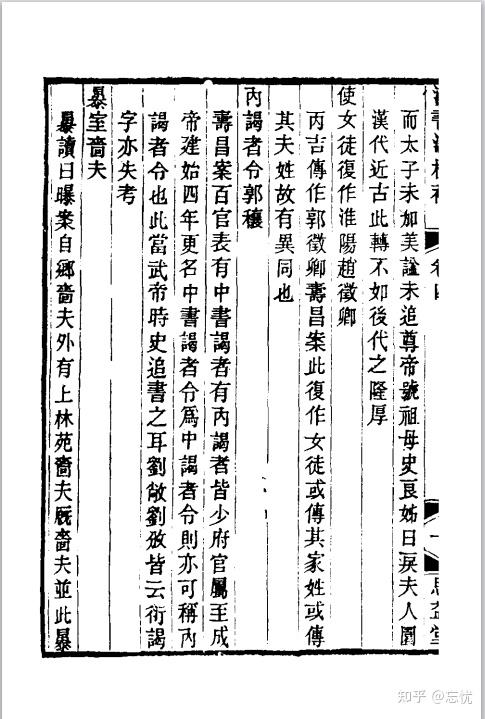 卷四
而太子未加美諡未追尊帝號祖母史良姊曰戾夫人園
漢代近古此轉不如後代之隆厚
使女徒復作淮陽趙徵卿
丙吉傳作郭徵卿壽昌案此復作女徒或傳其家姓或傳
其夫姓故有異同也
內謁者令郭穰
壽昌案百官表有中書謁者有內謁者皆少府官屬至成
帝建始四年更名中書謁者令爲中謁者令則亦可稱內
謁者令也此當武帝時史追書之耳劉敞劉攽皆云衍謁
字亦失考
暴室嗇夫
暴讀曰曝案自鄉嗇夫外有上林苑嗇夫厩嗇夫並此暴
知乎 @忘忧